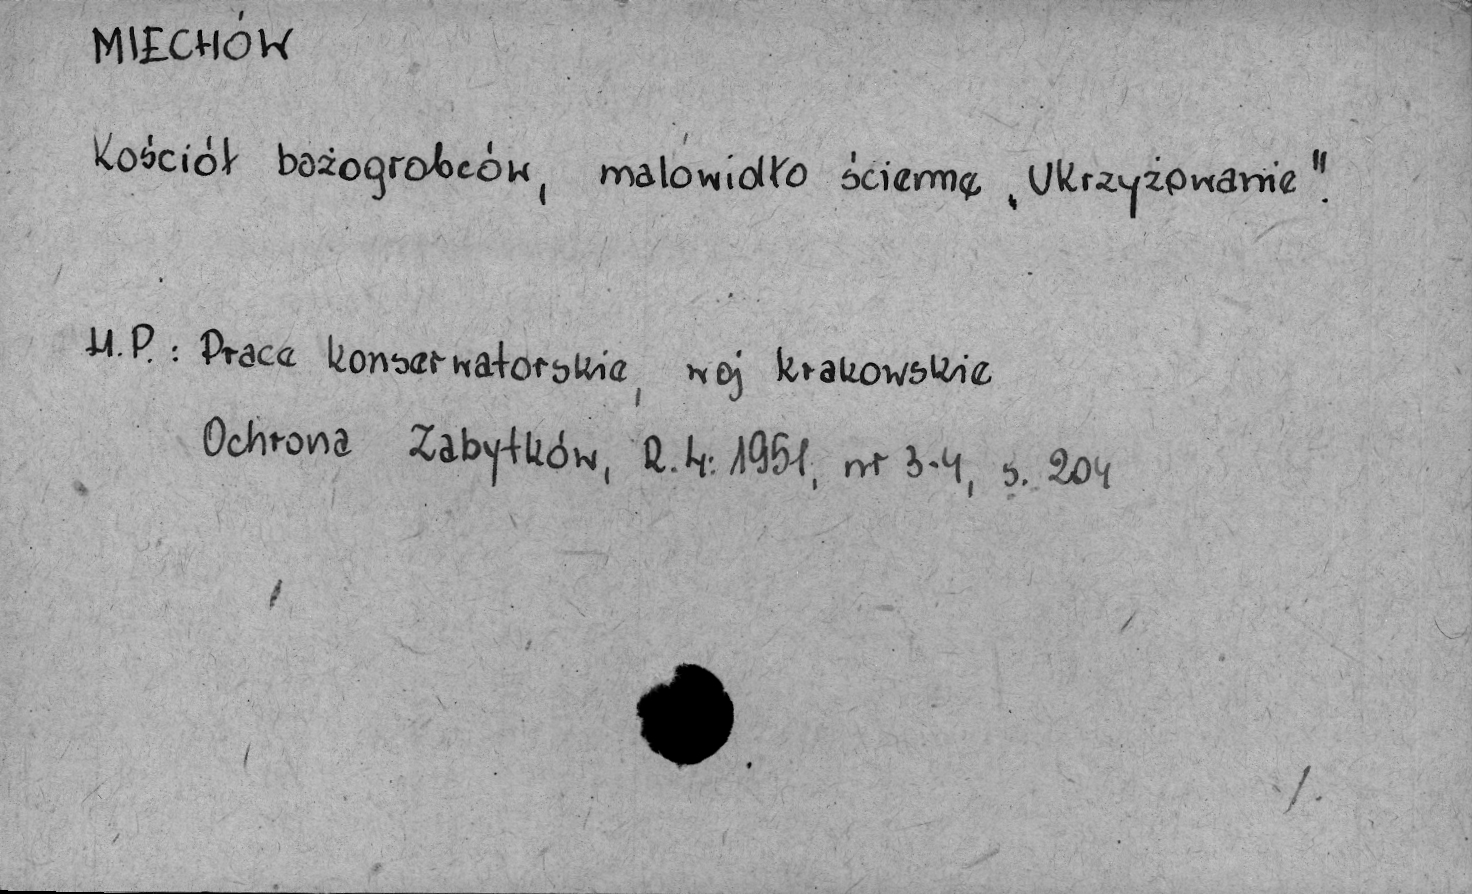 MIECHÓW
Kościół bożogrobców, malowidło ścienne „Ukrzyżowanie".
H.P.: Prace konserwatorskie, woj krakowskie
Ochrona Zabytków, R.4: 1951, nr 3-4, s. 204